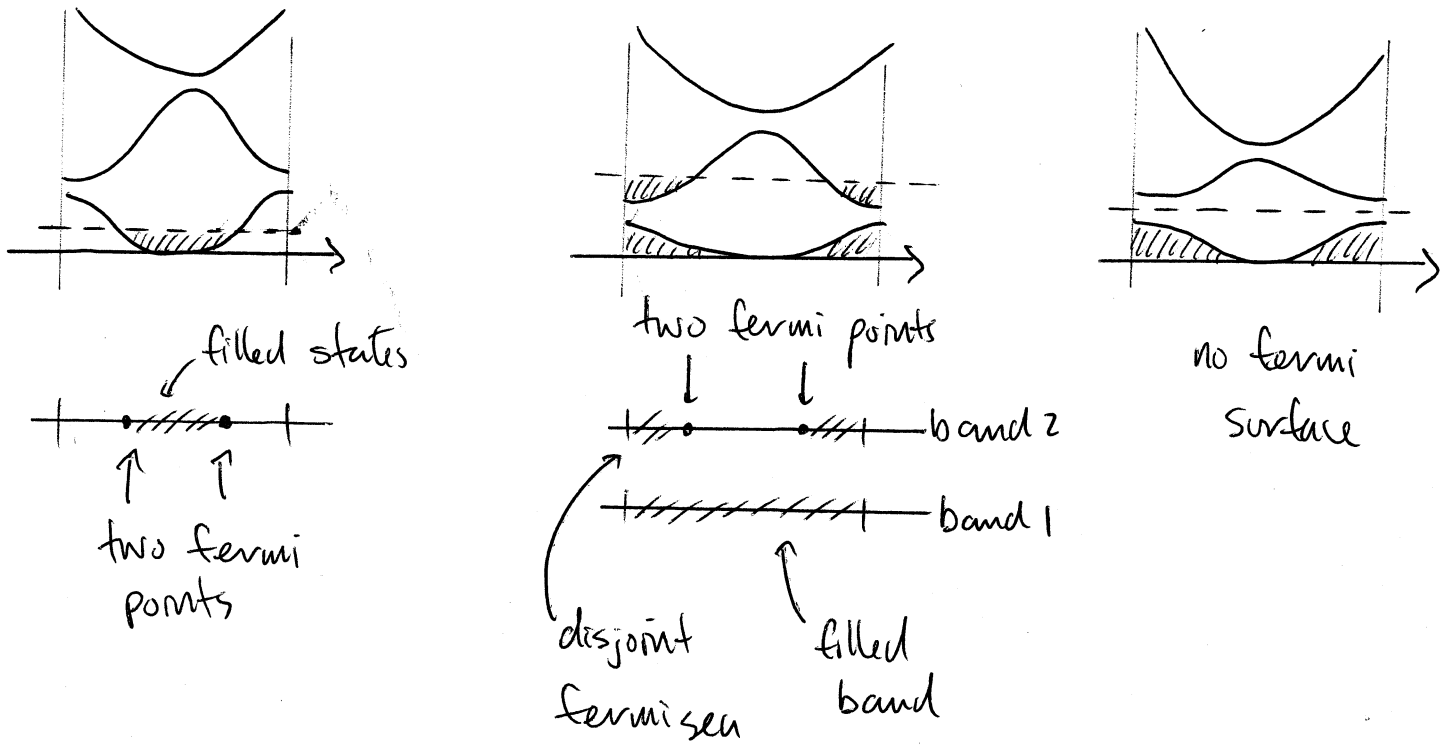 filled states
two fermi
points
two fermi points
band 2
band 1
disjoint
fermi sea
filled
band
no fermi
surface